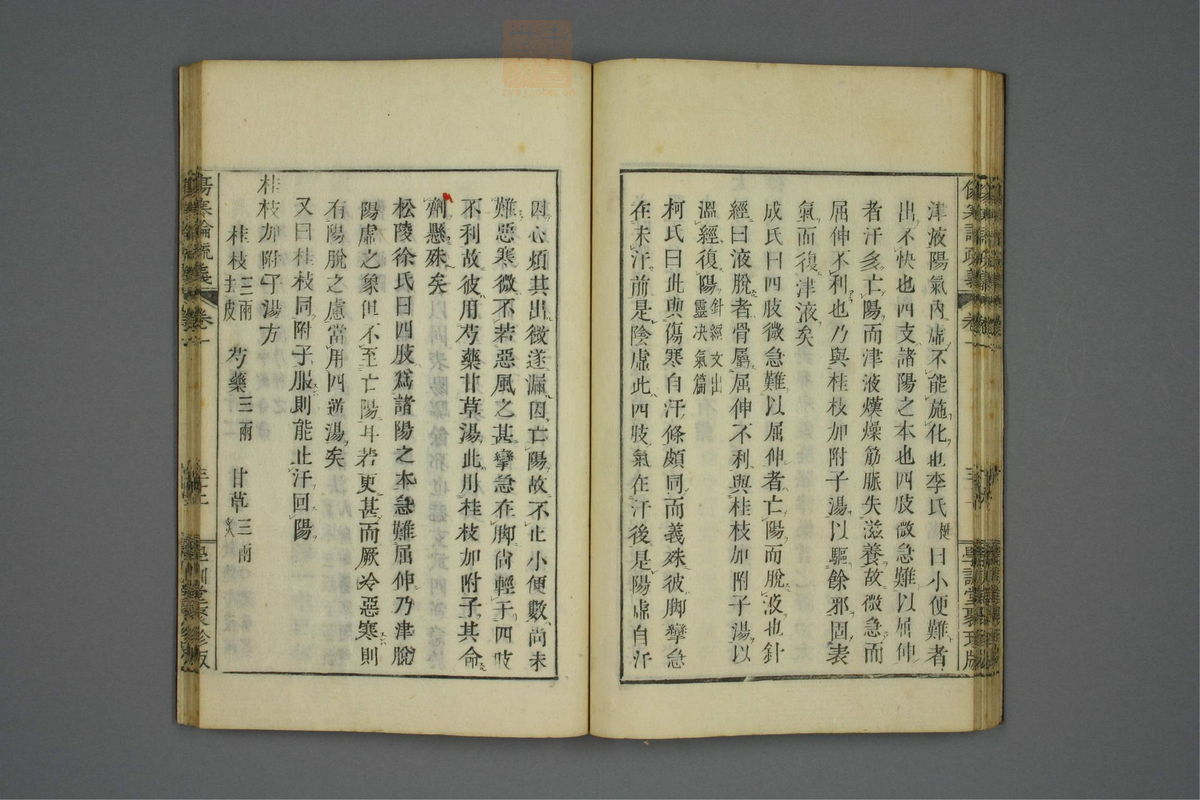 津液陽氣內虛不能施化也李氏梴曰小便難者
出不快也四支諸陽之本也四肢微急難以屈伸
者汗多亡陽而津液熯燥筋脈失滋養故微急而
屈伸不利也乃與桂枝加附子湯以驅餘邪固表
氣而復津液矣
成氏曰四肢微急難以屈伸者亡陽而脫液也針
經曰液脫者骨屬屈伸不利與桂枝加附子湯以
溫經復陽針經文出靈决氣篇
柯氏曰此與傷寒自汗條頗同而義殊彼脚攣急
在未汗前是陰虛此四肢氣在汗後是陽虛自汗
因心煩其出微遂漏因亡陽故不止小便數尚未
難惡寒微不若惡風之甚攣急在脚尙輕于四肢
不利故彼用芍藥甘草湯此用桂枝加附子其命
劑懸殊矣
松陵徐氏曰四肢爲諸陽之本急難屈伸乃津脫
陽虛之象但不至亡陽耳若更甚而厥冷惡寒則
有陽脫之慮當用四逆湯矣
又曰桂枝同附子服則能止汗回陽
桂枝加附子湯方
桂枝三兩去皮 芍藥三兩 甘草三兩炙
傷寒論疏義 卷一 學訓堂聚珍版